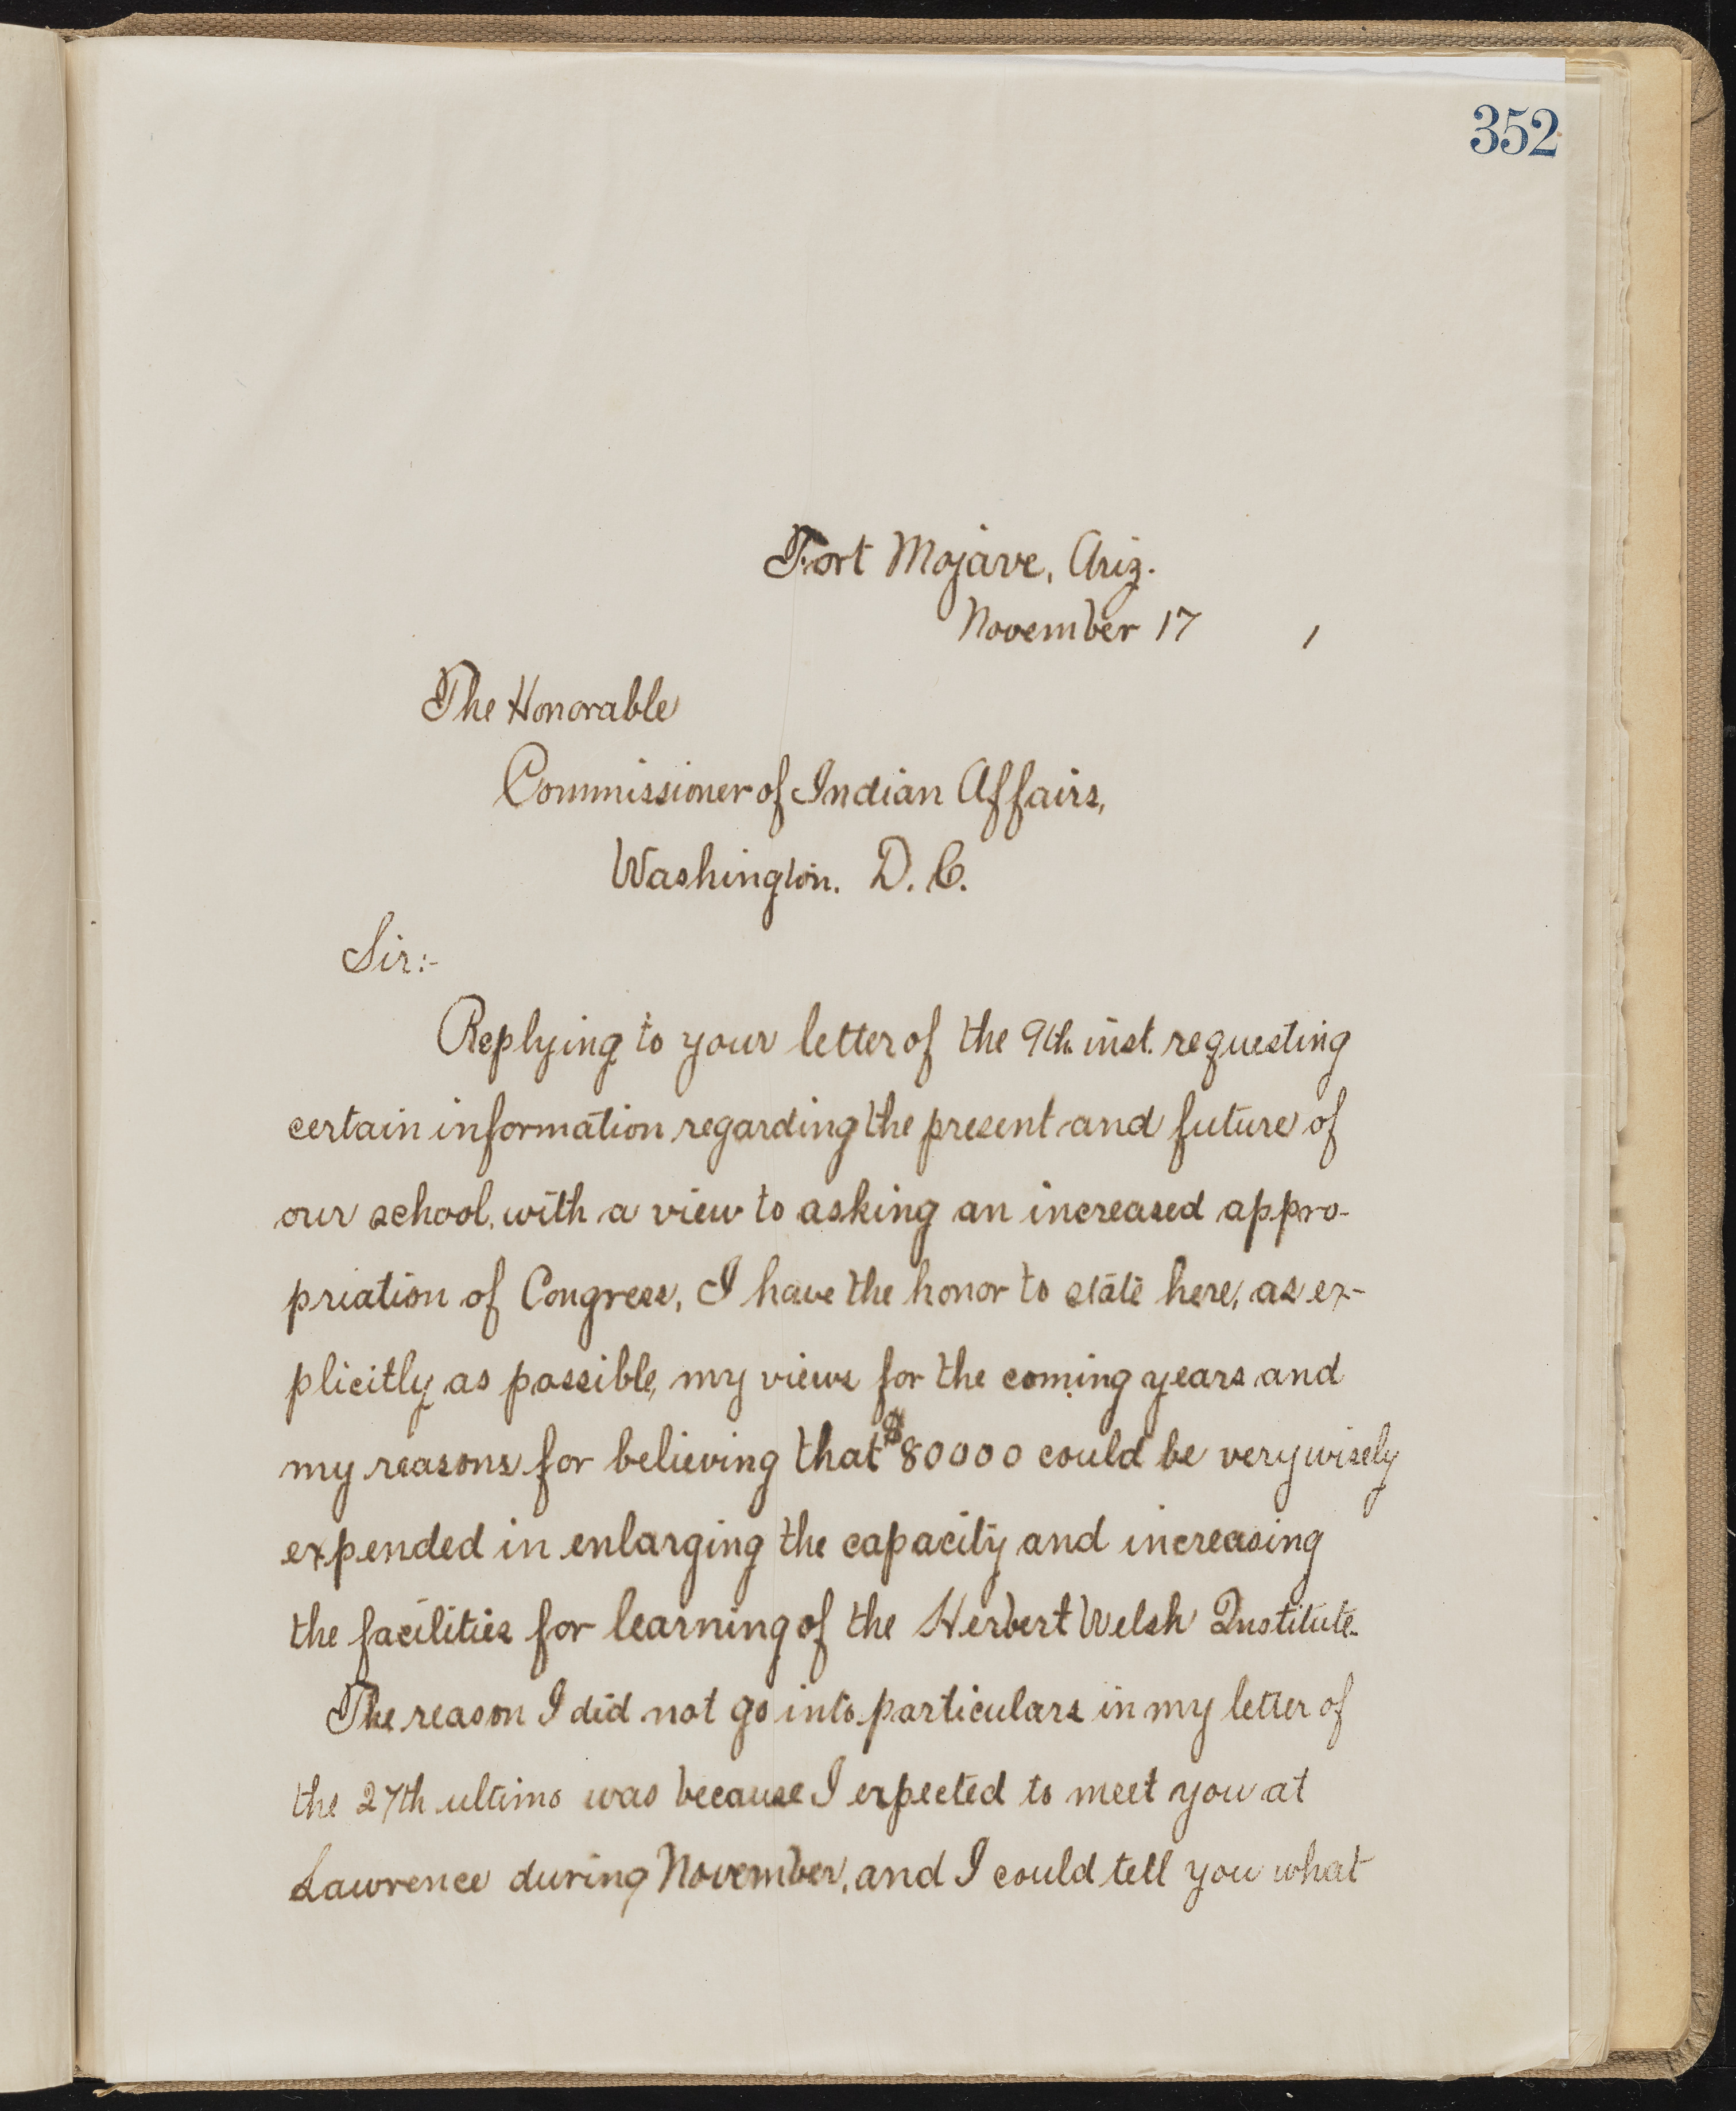 352
Fort Mojave, Ariz.
November 17 1
The Honorable
Commissioner of Indian Affairs,
Washington. D. C.
Sir:-
Replying to your letter of the 9th inst. requesting
certain information regarding the present and future of
our school, with a view to asking an increased appro-
priation of Congress, I have the honor to state here, as ex-
plicitly as possible, my views for the coming years and
my reasons for believing that $80000 could be very wisely
expended in enlarging the capacity and increasing
the facilities for learning of the Herbert Welsh Institute.
The reason I did not go into particulars in my letter of
the 27th ultimo was because I expected to meet you at
Lawrence during November, and I could tell you what